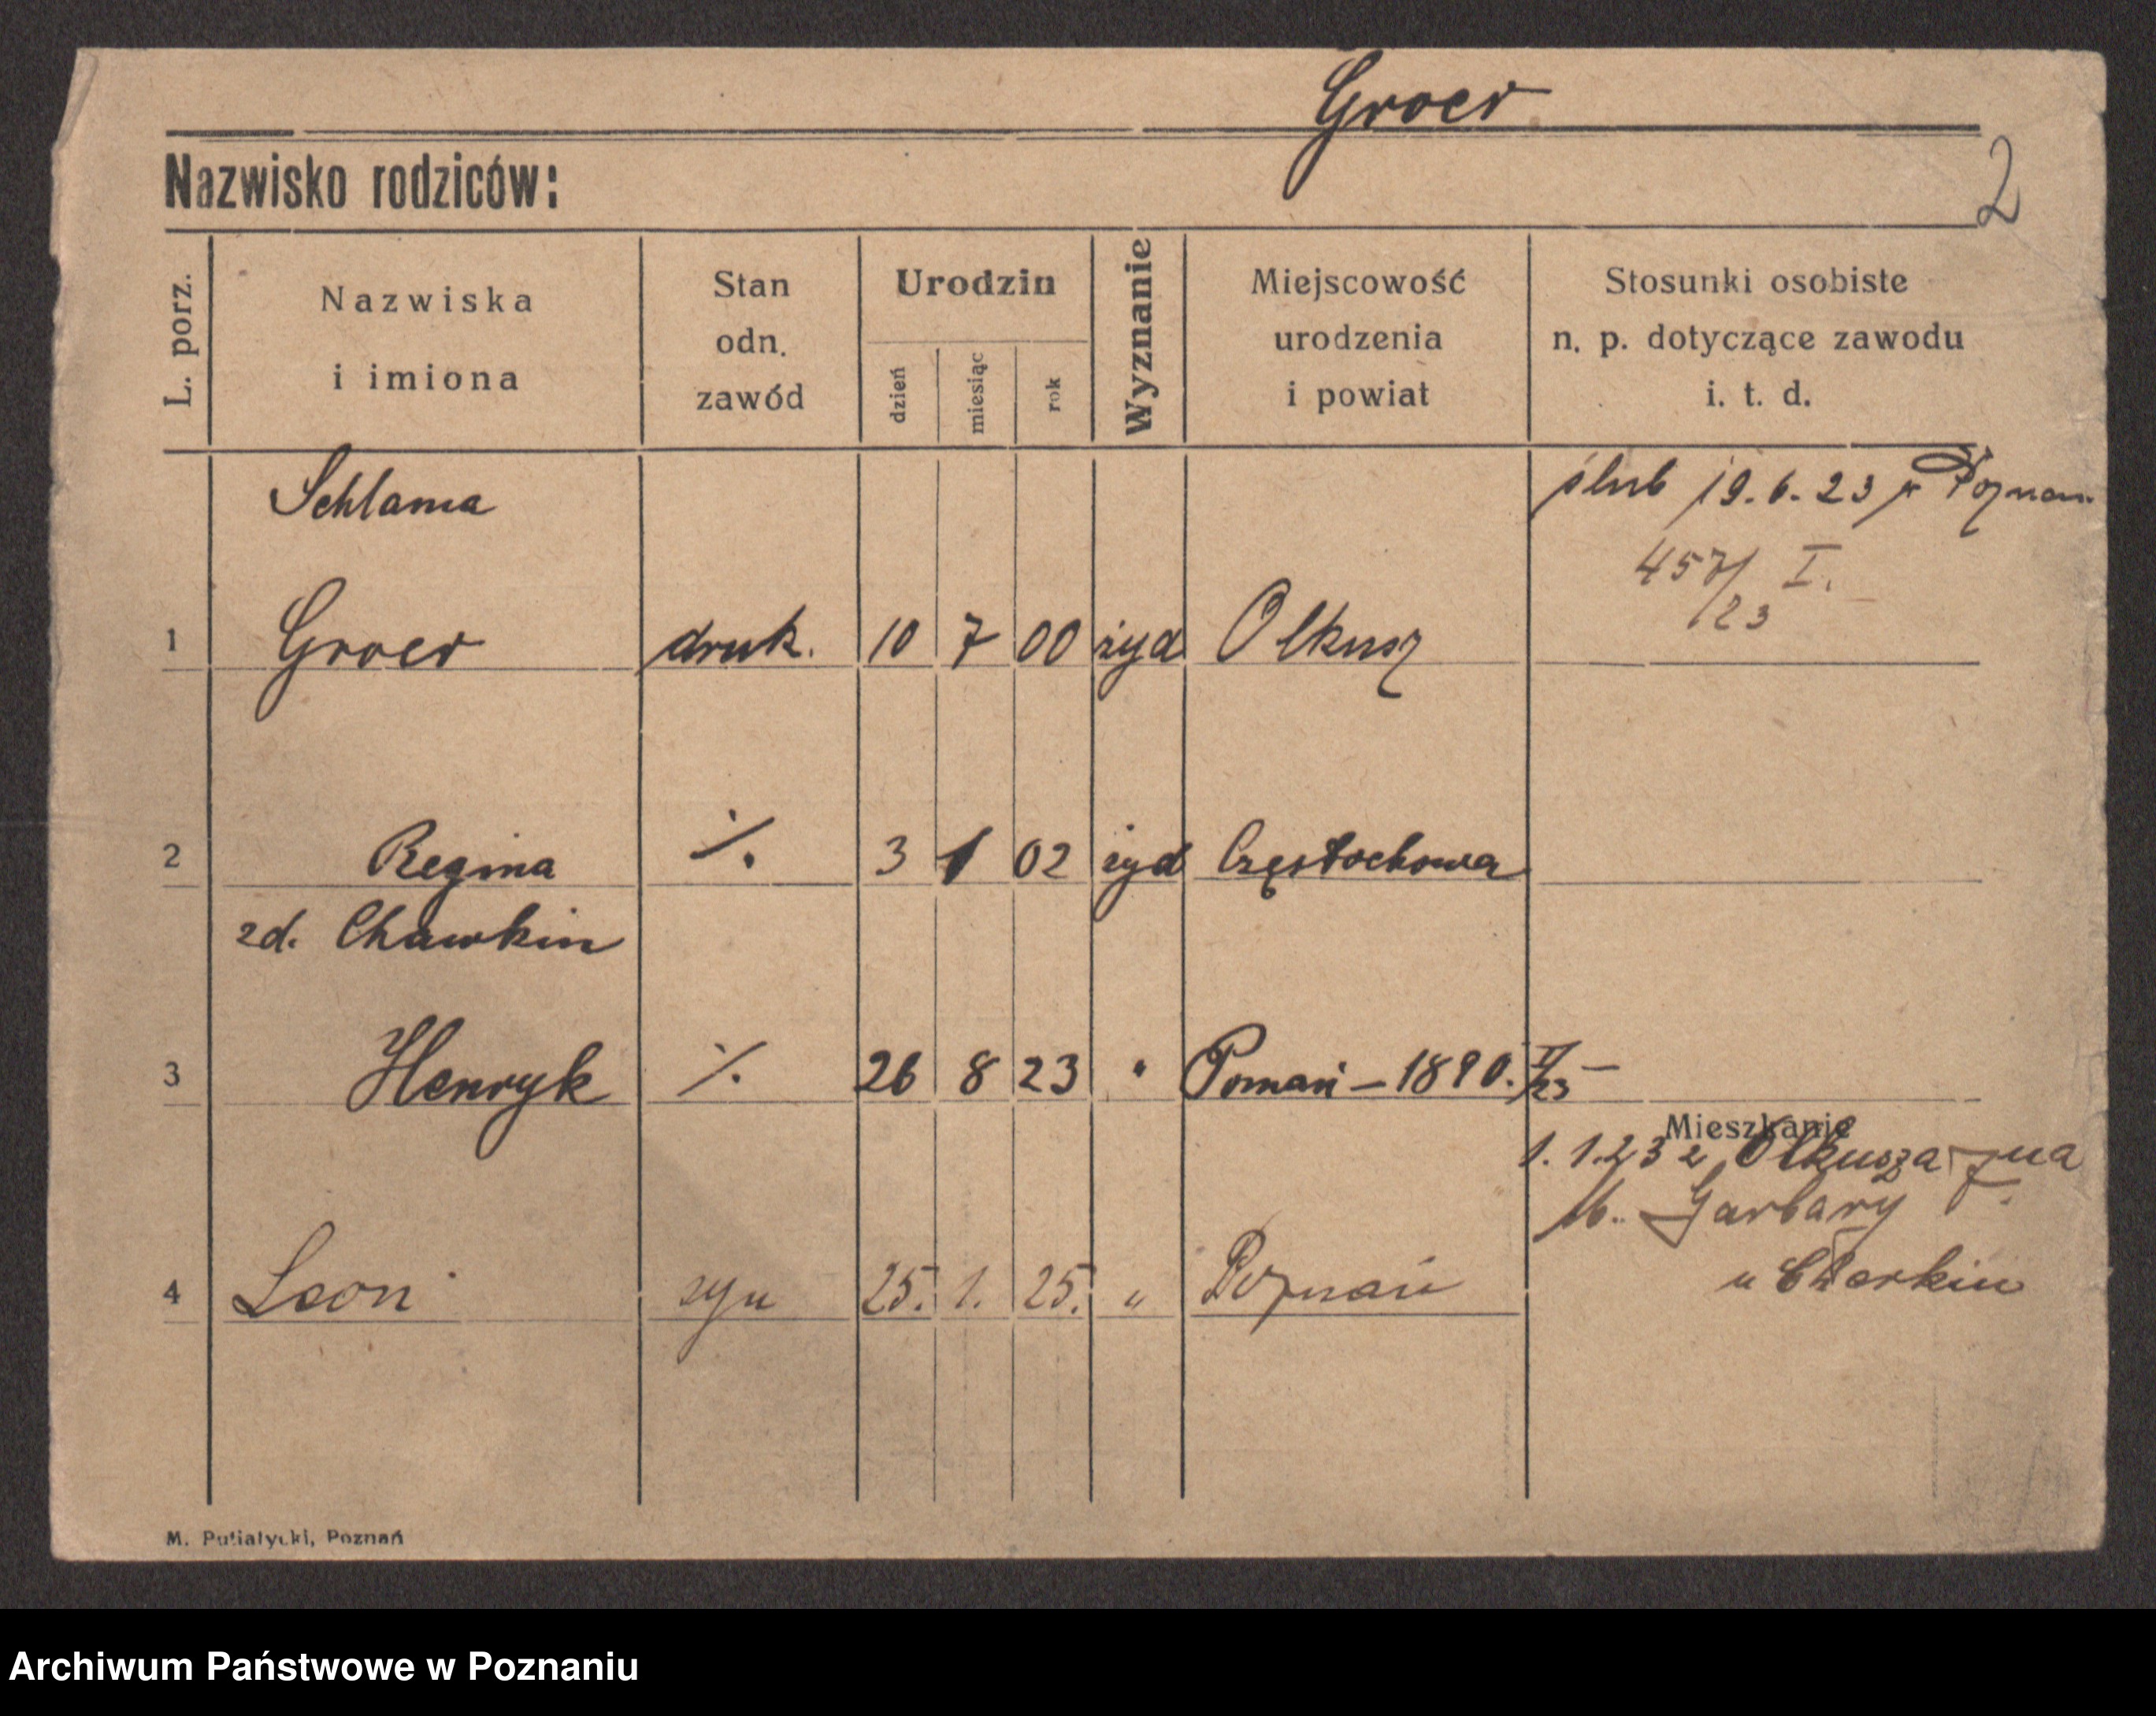 Groer
Nazwisko rodziców:
2
L. porz.
Nazwiska
i imiona
Stan
odn.
zawód
Urodzin
dzień
miesiąc
rok
Wyznanie
Miejscowość
urodzenia
i powiat
Stosunki osobiste
n. p. dotyczące zawodu
i. t. d.
Schlama
ślub 19.6.23 Poznan
457/23 I.
1 Groer druk. 10 7 00 żyd Olkusz
2 Regina ./. 3 1 02 żyd Częstochowa
zd. Chawkin
3 Henryk ./. 26 8 23 " Poznań – 1890. I/23 –
Mieszkanie
1.1.23 z Olkusza na
16. Garbary 7.
4 Leon syn 25. 1. 25. " Poznań
u Charkin
M. Putiatycki, Poznań
Archiwum Państwowe w Poznaniu